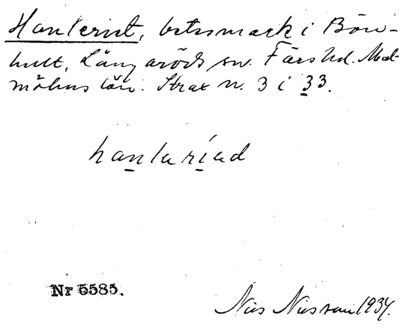 Hanterist, betesmark i Bön-
hult, Långaröds sn. Färs hd. Mal-
möhus län. Strax n. 3 i 33.
hanlaríad
Nr 5585.
Nils Nilsson 1934.